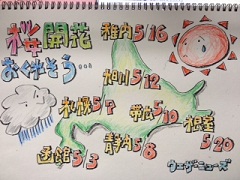 桜開花
おくれそう…
稚内5/16
旭川5/12
札幌5/7
帯広5/10
根室
5/20
静内5/6
函館
5/3
ウェザーニューズ